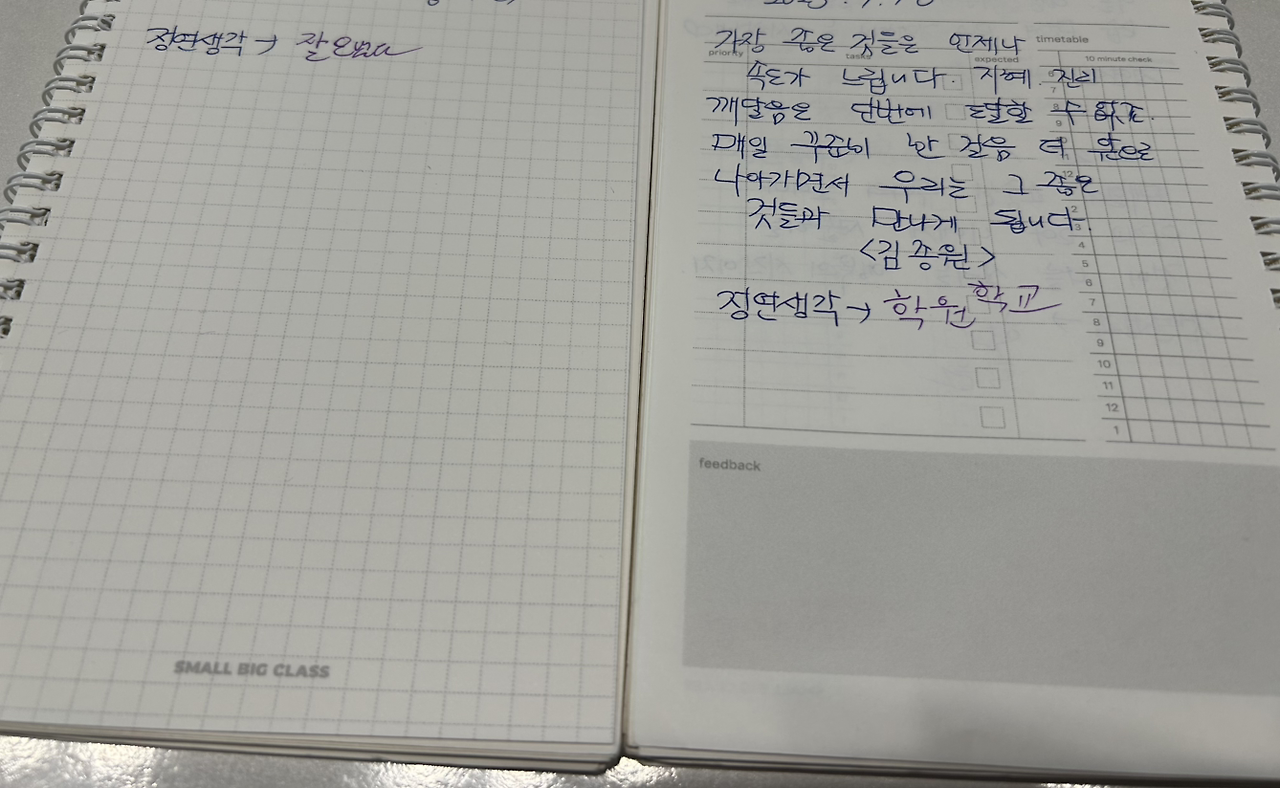 정연생각 →
SMALL BIG CLASS
가장 좋은 것들은 언제나
timetable
priority
tasks
expected
10 minute check
속도가 느립니다. 지혜. 진리
깨달음은 단번에 도달할 수 없죠.
매일 꾸준히 한 걸음 더 앞으로
나아가면서 우리는 그 좋은
것들과 만나게 됩니다.
<김종원>
정연생각 → 학원 학교
4
5
6
7
8
9
10
11
12
1
feedback